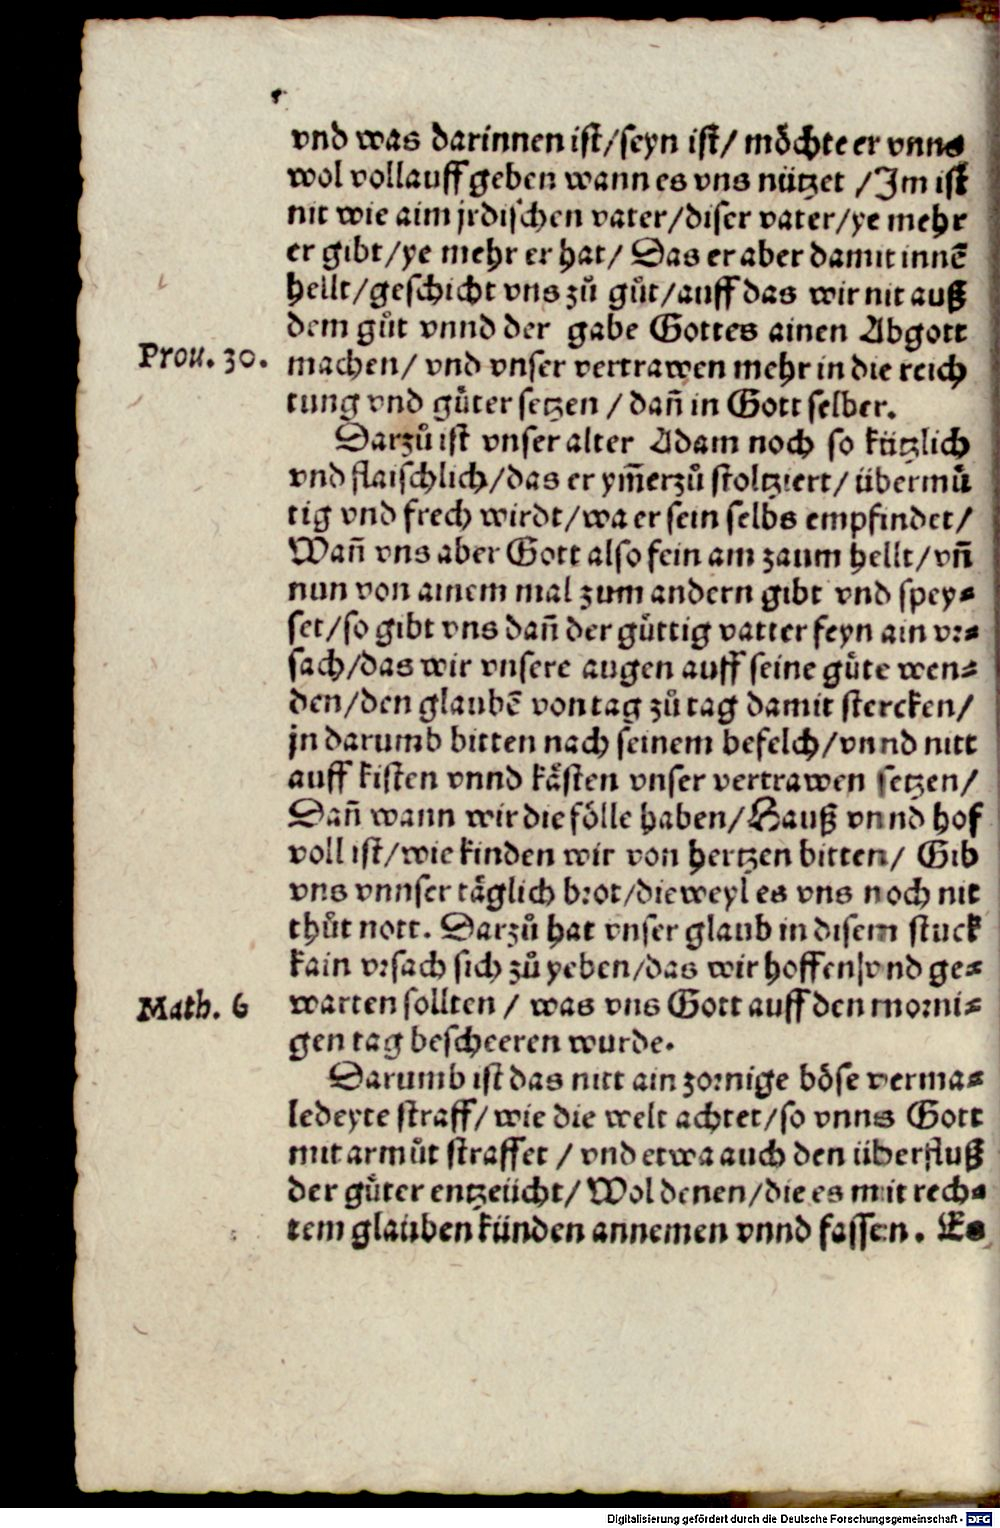 vnd was darinnen ist/seyn ist/ möchte er vnns
wol vollauff geben wann es vns nützet /Jm ist
nit wie aim jrdischen vater/diser vater/ye mehr
er gibt/ye mehr er hat/ Das er aber damit innẽ
hellt/geschicht vns zů gůt/auff das wir nit auß
dem gůt vnnd der gabe Gottes ainen Abgott
Prou. 30. machen/ vnd vnser vertrawen mehr in die reich
tung vnd gůter setzen / dañ in Gott selber.
Darzů ist vnser alter Adam noch so kützlich
vnd flaischlich/das er ym̃erzů stoltziert/ übermů
tig vnd frech wirdt/wa er sein selbs empfindet/
Wañ vns aber Gott also fein am zaum hellt/vñ
nun von ainem mal zum andern gibt vnd spey⸗
set/so gibt vns dañ der gůttig vatter feyn ain vr⸗
sach/das wir vnsere augen auff seine gůte wen⸗
den/den glaubẽ von tag zů tag damit stercken/
jn darumb bitten nach seinem befelch/vnnd nitt
auff kisten vnnd kästen vnser vertrawen setzen/
Dañ wann wir die fölle haben/Hauß vnnd hof
voll ist/wie kinden wir von hertzen bitten/ Gib
vns vnnser täglich brot/dieweyl es vns noch nit
thůt nott. Darzů hat vnser glaub in disem stuck
kain vrsach sich zů yeben/das wir hoffen/vnd ge⸗
Math. 6 warten sollten / was vns Gott auff den morni⸗
gen tag bescheeren wurde.
Darumb ist das nitt ain zornige böse verma⸗
ledeyte straff/wie die welt achtet/so vnns Gott
mit armůt straffet / vnd etwa auch den überfluß
der gůter entzeücht/ Wol denen/die es mit rech⸗
tem glauben künden annemen vnnd fassen. Es
Digitalisierung gefördert durch die Deutsche Forschungsgemeinschaft - DFG